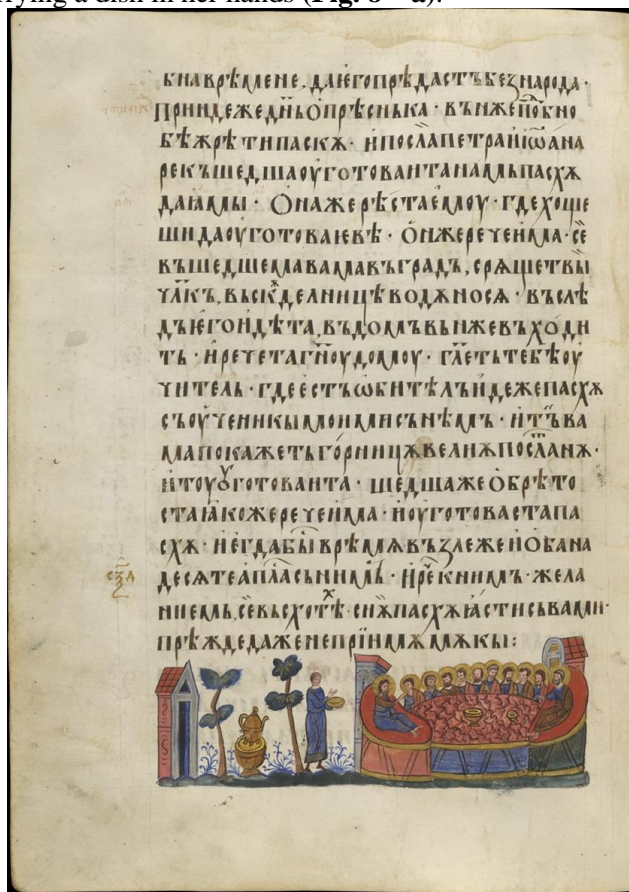 rying a dish in her hands (Fig. 8 – a).
бна врѣмене. да его прѣдастъ без народа ·
Прииде же д҃нь опрѣснька · въ ньже по́бно
бѣ жрѣти пасхѫ · и посла петра и іѡана
рекъ шедша оуготоваита намь пасхѫ
да ꙗмы · Она же рѣста емоу · где хоще
ши да оуготоваевѣ · Ѡн же рече има · се
въшедшема вама въ градъ, срѧщет вы
чл҃къ, въ скѫделницѣ водѫ носѧ · въ слѣ
дъ его идѣта, въ домъ вь ньже въходи
ть · и речета г҃ноу домоу · гл҃еть тебѣ оу
читель · где естъ ѡбитѣлъ идеже пасхѫ
съ оученикы моими сънѣмъ · и тъ ва
ма покажеть горницѫ велиѫ послaнѫ ·
и тоу оуготоваита · шедша же обрѣто
ста ꙗкоже рече има · и оуготоваста па
схѫ · и егда бы врѣмѧ възлеже и оба на
десѧте ап҃ла съ нимь · и реч к нимъ · жела
ниемь, се въсхотѣх сиѫ пасхѫ ꙗсти съ вами ·
прѣжде даже не прїимѫ мѫкы :
сѯд